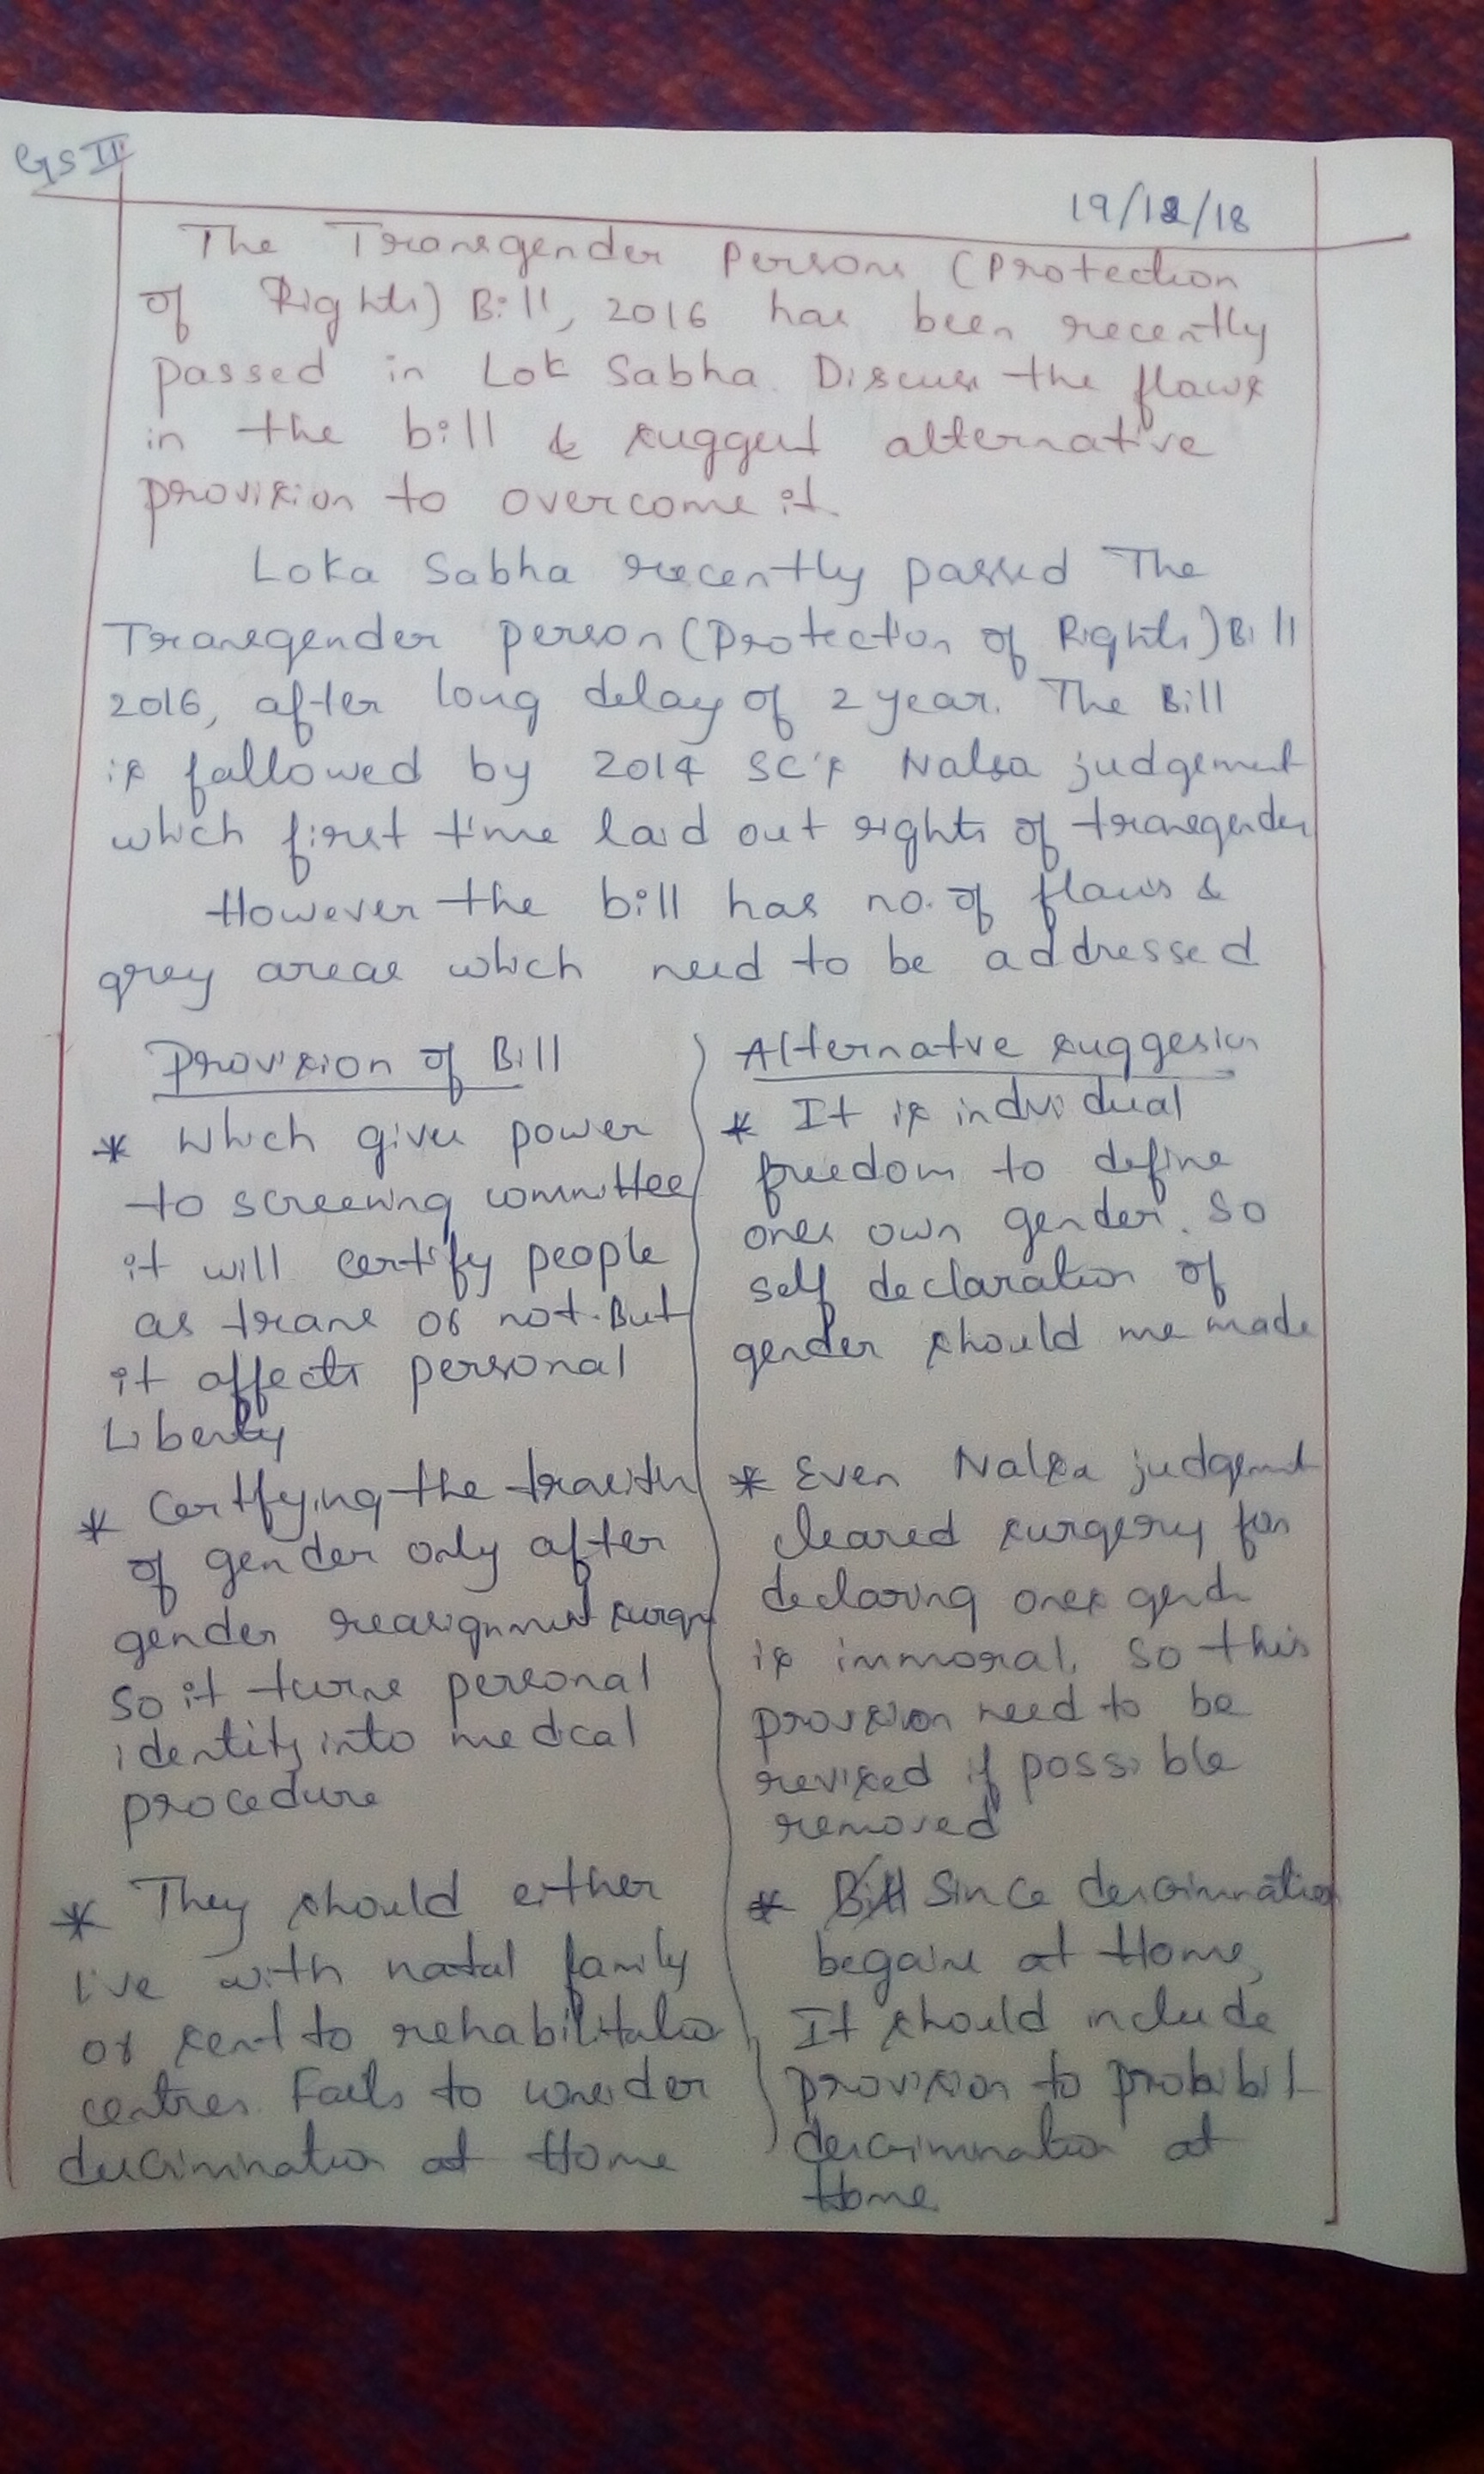 GS II
19/12/18
The Transgender Persons (Protection
of Rights) Bill, 2016 has been recently
passed in Lok Sabha. Discuss the flaws
in the bill & suggest alternative
provision to overcome it.
Loka Sabha recently passed The
Transgender person (Protection of Rights) Bill
2016, after long delay of 2 year. The Bill
is fallowed by 2014 SC's Nalsa judgement
which first time laid out rights of transgender
However the bill has no. of flaws &
grey areas which need to be addressed
Provision of Bill
* which gives power
to screening committee
it will certify people
as trans or not. But
it affects personal
Liberty
* Certfying the
of gender only after
gender reasignment
so it turns personal
identity into medcal
procedure
* They should either
live with natal family
or sent to rehabilitation
centres. Fails to consider
discrimination at Home
Alternatve suggesion
* It is individual
freedom to define
ones own gender. So
self declaration of
gender should me made
* Even Nalsa judgement
cleared surgery for
declaring ones gende
is immoral. So this
provision need to be
revised if possible
removed
* Since descrimination
begains at Home,
It should include
provision to prohibit
descrimination at
Home.